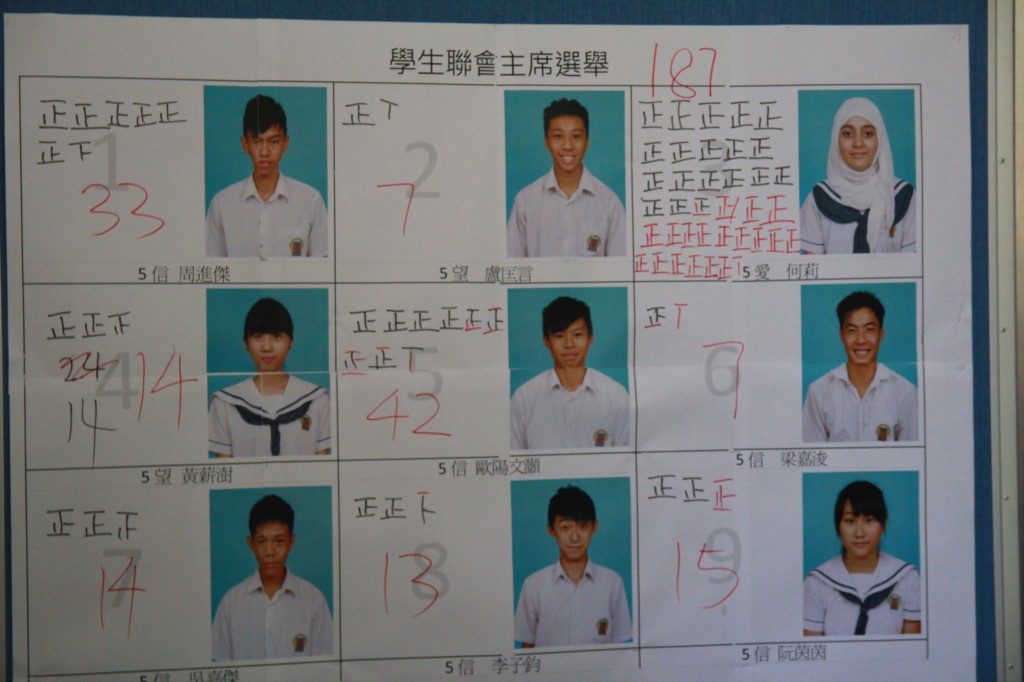 學生聯會主席選舉
187
正正正正正
正下
1
33
5信 周進傑
正丅
2
7
5望 盧匡言
正正正正正
正正正正正
正正正正正正
正正正正正正
正正正正正正正正正
正正正正正正丅
5愛 何莉
正正正
4
24
14
14
5望 黃薪澍
正正正正正正
正正丅
5
42
5信 歐陽文灝
正丅
6
7
5信 梁嘉浚
正正正
7
14
5信 吳嘉傑
正正下
8
13
5信 李子鈞
正正正
9
15
5信 阮茵茵